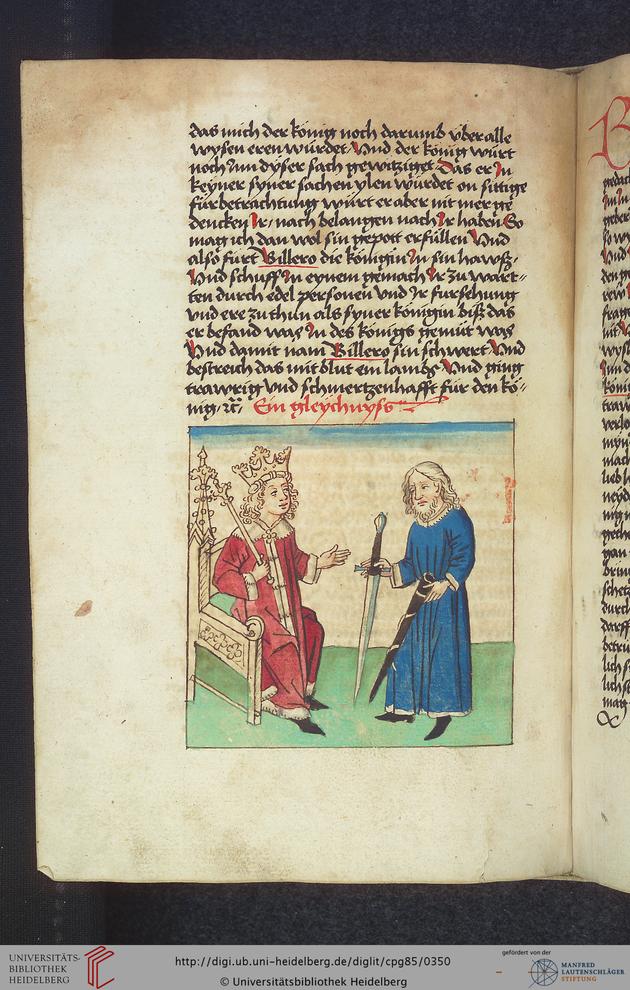 das mich der könig noch darumb vber alle
wysen eren würdet Vnd der könig würt
noch Inn dyser sach gewitziget Das er In
keyner syner sachen ylen würdet on sittige
fürbetrachtung würt er aber nit mer ge
dencken Ir / nach belangen nach Ir haben So
mag ich dan wol sin gepott erfüllen Vnd
also fürt Billero die königin In sin hawß
Vnd schuff In eynem gemach Ir zu wart-
ten durch edel personen vnd Ir fursehung
vnd ere zu thun als syner königin biß das
er befand was In des königs gemüt was
Vnd damit nam Billero sin schwert Vnd
bestreich das mit blut ein lambs Vnd ging
trawrig vnd schmertzenhafft für den kö-
nig ꝛc̄ Ein gleychnyss
UNIVERSITÄTS-
BIBLIOTHEK
HEIDELBERG
http://digi.ub.uni-heidelberg.de/diglit/cpg85/0350
© Universitätsbibliothek Heidelberg
gefördert von der
MANFRED
LAUTENSCHLÄGER
STIFTUNG